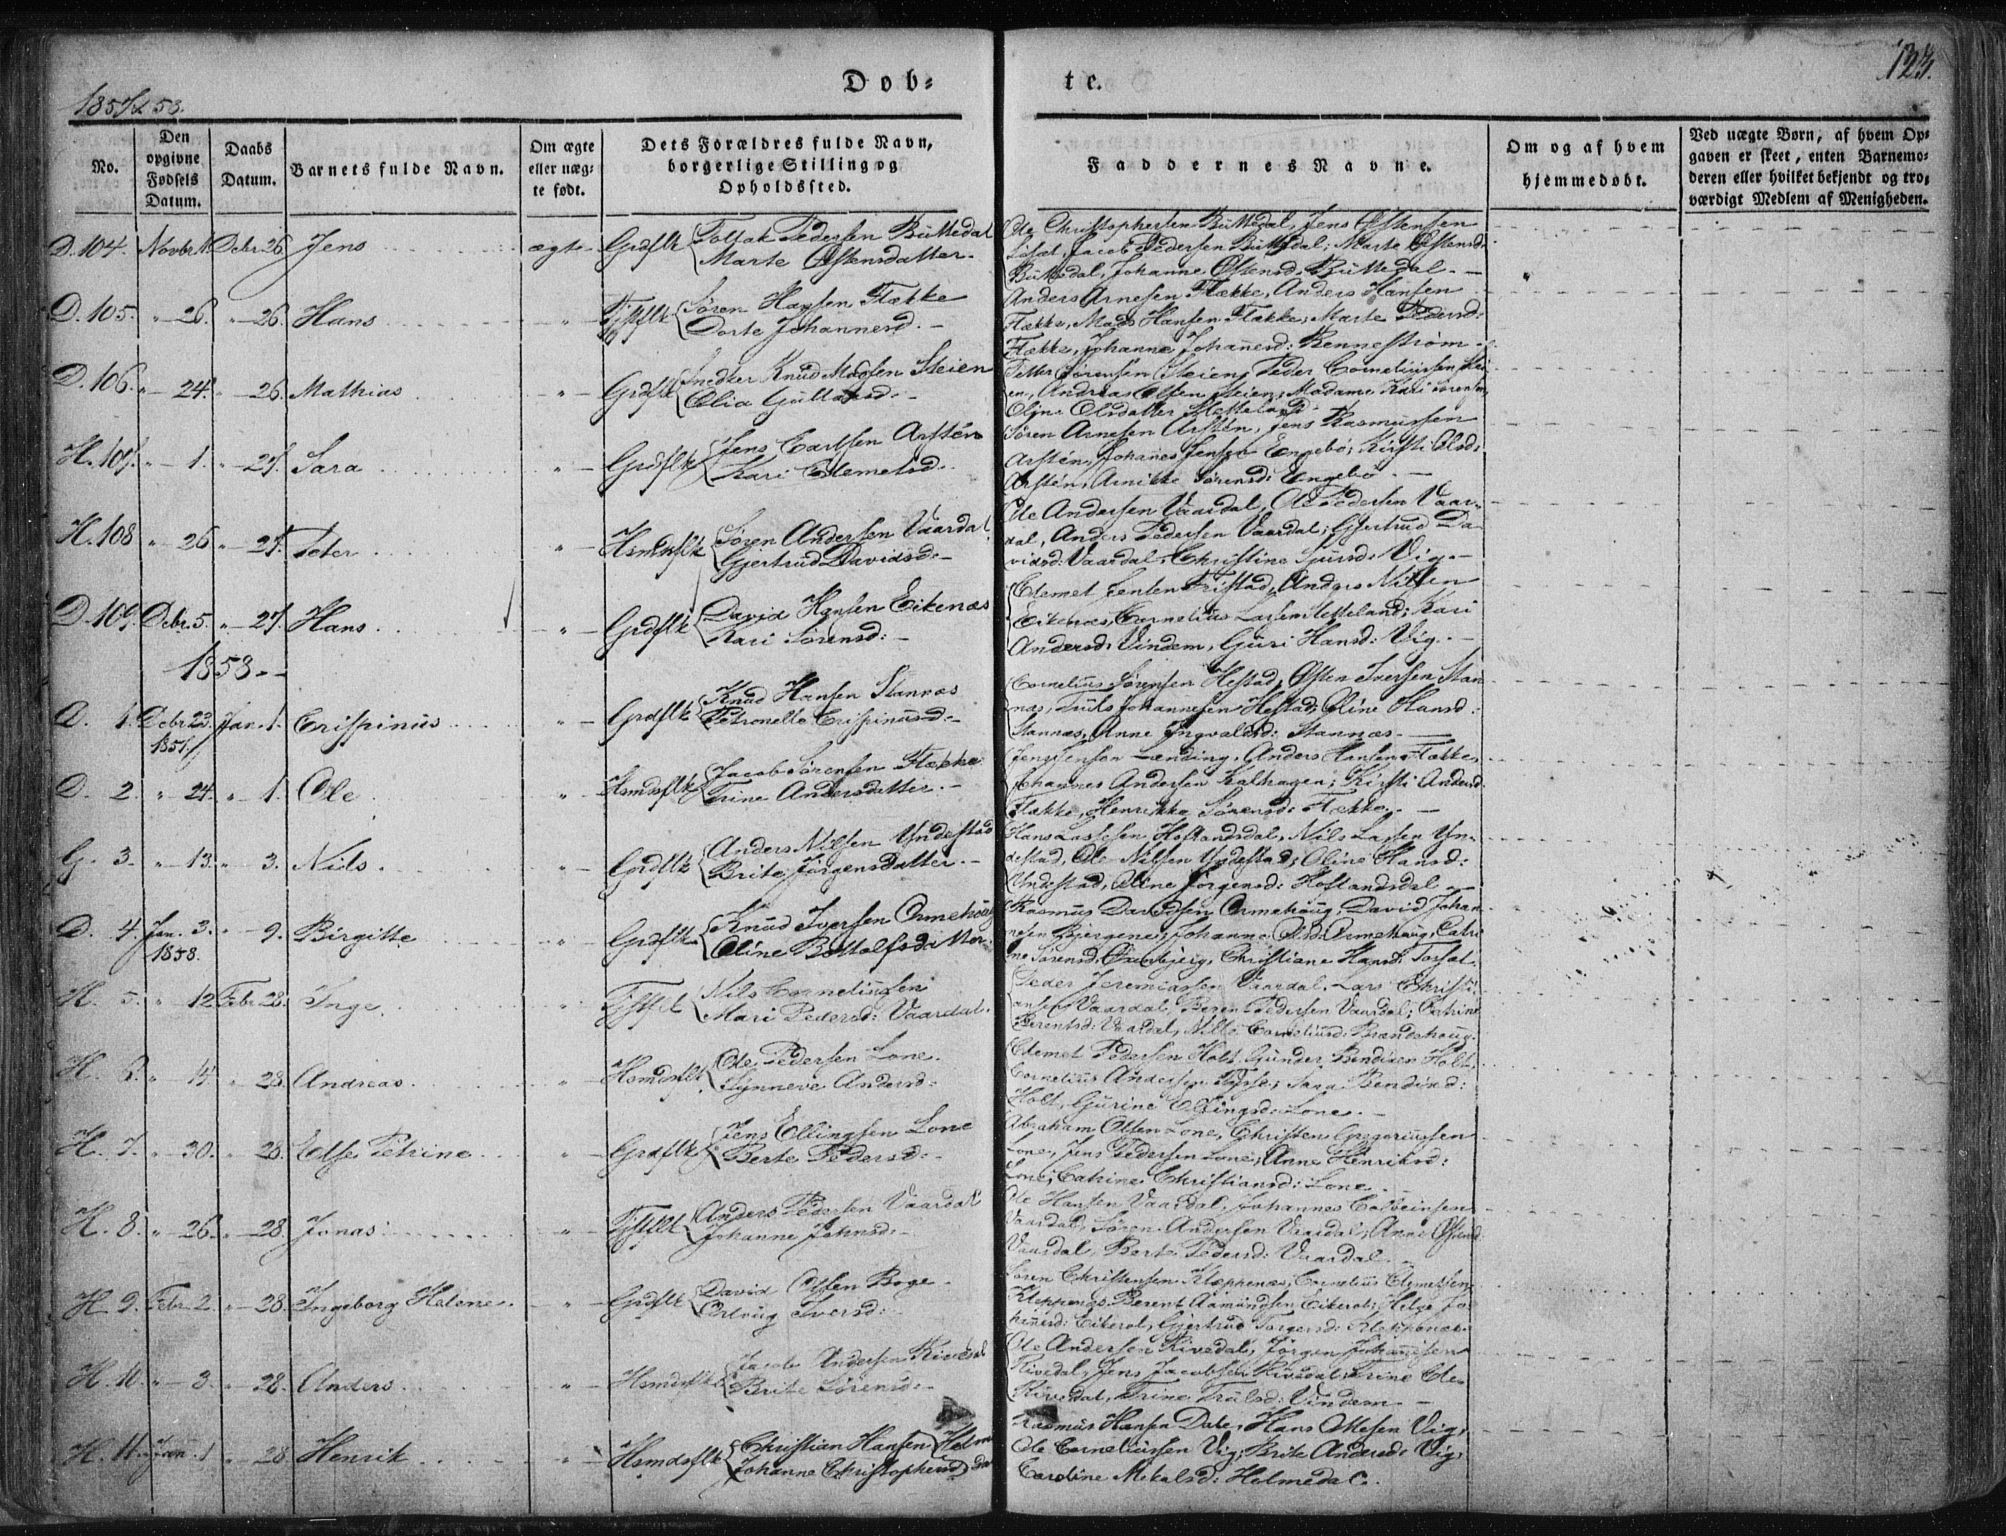 1857 & 58.
Døb-
te.
123.
No.
Den opgivne Fødsels Datum.
Daabs Datum.
Barnets fulde Navn.
Om ægte eller uægte født.
Dets Forældres fulde Navn, borgerlige Stilling og Opholdssted.
Faddernes Navne.
Om og af hvem hjemmedøbt.
Ved uægte Børn, af hvem Opgaven er skeet, enten Barnemoderen eller hvilket bekjendt og troværdigt Medlem af Menigheden.
D. 104. Novbr. Debr. 26. Jens ægte Grdflk Pedersen Büttedal
Marte Østensdatter.
Ole Christophersen Büttedal, Jens Østensen
Jacob Pedersen Büttedal; Marte Østensd:
Büttedal, Johanne Østensd: Büttedal.
D. 105. " 26. " 26. Hans " Søren Hansen Flække
Dorte Johannesd.
Anders Arnesen Flække, Anders Hansen
Flække, Mads Hansen Flække; Marte Pedersd:
Flække, Johanne Johanesd: Rennestrøm
D. 106. " 24. " 26. Mathias " Grdflk Snedker Knud Madsen Steien
Olia
Petter Sørensen Steien, Peder Corneliussen Stei
en, Andreas Olsen Steien; Madame Kari Sørensen,
Oline Olsdatter
H. 107. " 1. " 27. Sara " Grdflk Jens Arstén
Kari Clemetsd.
Søren Arnesen Arstén, Jens Rasmussen
Arstén, Johanes Jensen Engebø; Kirsti Olsd:
Arstén, Sørensd: Engebø
H. 108 " 26 " 27. Peter " Hsmdsflk Søren Andersen Vaardal
Gjertrud Davidsd:
Ole Andersen Vaardal, Pedersen Vaar-
dal, Anders Pedersen Vaardal; Gjertrud Da-
vidsd: Vaardal, Christine Sjursd: Vig.
D. 109. Debr. 5. " 27. Hans " Grdflk David Hansen Eikenæs
Kari Sørensd:
Clemet Jensen Tristad, Anders Nilsen
Eikenæs, Cornelius Larsen Hetteland; Kari
Andersd: Vindem, Guri Hansd: Vig.
1858.
D. 1. Debr. 23. Jan. 1. Crispinus " Grdflk Knud Hansen Stannæs
1857. Petronelle Crispinusd:
Cornelius Sørensen Hestad, Østen Iversen Stan
næs, Truls Johannesen Hestad; Oline Hansd:
Stannæs, Anne Ingvaldsd: Stannæs.
D. 2. " 24. " 1. Ole " Hsmdsflk Jacob Sørensen Flække
Trine Andersdatter.
Jens Jensen Lending, Anders Hansen Flække,
Johannes Andersen Kalhagen; Kirsti Andersd:
Flække, Henrikke Sørensd: Flække.
G. 3. " 13. " 3. Nils. " Grdflk Anders Nilsen Yndestad
Brite Jørgensdatter.
Hans Lassesen Hoflandsdal, Nils Larsen Yn-
destad, Ole Nilsen Yndestad; Oline Hansd:
Yndestad, Oline Jørgensd: Hoflandsdal
D. 4. Jan. 3. " 9. Birgitte " Grdflk Knud Iversen Ormehoug
1858. Oline Bottolfsd:
Rasmus Davidsen Ormehoug, David Johan
nesen Bjergene; Johanne Olsd: Ormehoug, Catri
ne Sørensd: Christiane Hansd:
H. 5. " 12. Febr. 28. Inge. " Nils Corneliussen
Mari Pedersd: Vaardal.
Peder Jeremiassen Vaardal, Lars Christi
ansen Vaardal, Beren Pedersen Vaardal; Catrine
Berentsd: Vaardal, Nille Corneliusd: Brandehoug.
H. 6. " 14 " 28. Andreas " Hsmdsflk Ole Pedersen Lone.
Synneve Andersd:
Clemet Pedersen Holt, Gunder Bendixen Holt,
Cornelius Andersen Tysse; Sara Bendixd:
Holt, Gurine Ellingsd: Lone.
H. 7. " 30. " 28. Else Petrine " Grdflk Jens Ellingsen Lone
Berte Pedersd:
Abraham Olsen Lone, Christen Gregoriussen
Lone, Jens Pedersen Lone; Anne Henriksd:
Lone; Catrine Christiansd: Lone.
H. 8. " 26. " 28. Jonas " Anders Pedersen Vaardal
Johanne Johnsd:
Ole Hansen Vaardal, Johannes Colbeinsen
Vaardal, Søren Andersen Vaardal; Anne
Vaardal, Berte Pedersd: Vaardal.
H. 9. Febr. 2. " 28. Ingeborg Helene. " Grdflk David Olsen Boge
Iversd:
Søren Christensen Kleppenæs, Cornelius Clemetsen
Kleppenæs, Berent Aamundsen Eikerol; Helge Jo
hanesd: Eikerol, Gjertrud Torgersd: Kleppenæs.
H. 10. " 3. " 28. Anders. " Hsmdsflk Jacob Andersen Rivedal
Brite Sørensd:
Ole Andersen Rivedal, Jørgen Johannesen
Rivedal, Jens Jacobsen Rivedal; Trine Ole
Rivedal, Trine Trulsd: Vindem
H. 11. Jan. 1 " 28 Henrik " Hsmdsflk Christian Hansen Holme
Johanne Christophersd dal
Rasmus Hansen Dale, Hans Olsen Vig,
Ole Corneliussen Vig; Brite Andersd: Vig,
Caroline Mikalsd: Holmedal.